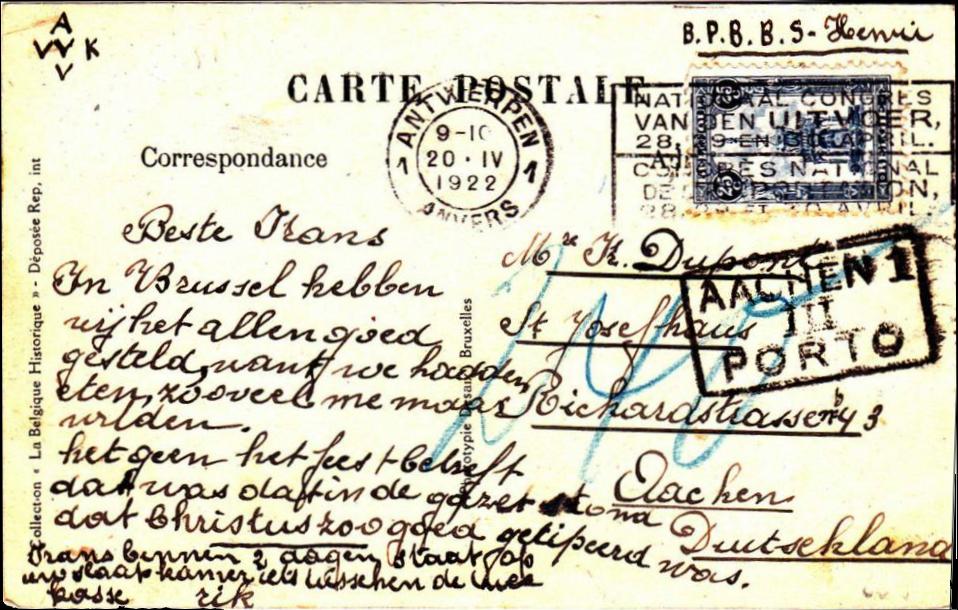 A
VVK
V
B.P.B.B.S- Henri
CARTE POSTALE
Correspondance
ANTWERPEN
1 1
9-10
20·IV
1922
ANVERS
NATIONAAL CONGRES
VAN DEN UITVOER,
28, 29 EN 30 APRIL.
CONGRES NATIONAL
DE L'EXPORTATION,
28, 29 ET 30 AVRIL.
25 25
Collection « La Belgique Historique » - Déposée Rep. int
Phototypie Desaix Bruxelles
Beste Frans
In Brussel hebben
wij het allen goed
gesteld, want we hadden
eten, zooveel me maar
wilden.
het geen het feest betreft
dat was dat in de gazet stond
dat Christus zoo goed getipeerd was.
Frans binnen 2 dagen staat op
uw slaapkamer iets tusschen de twee
kasse rik
Mr K. Dupont
St Josefhaus
Richardstrasse 43
Aachen
Duitschland
AACHEN 1
III
PORTO
240